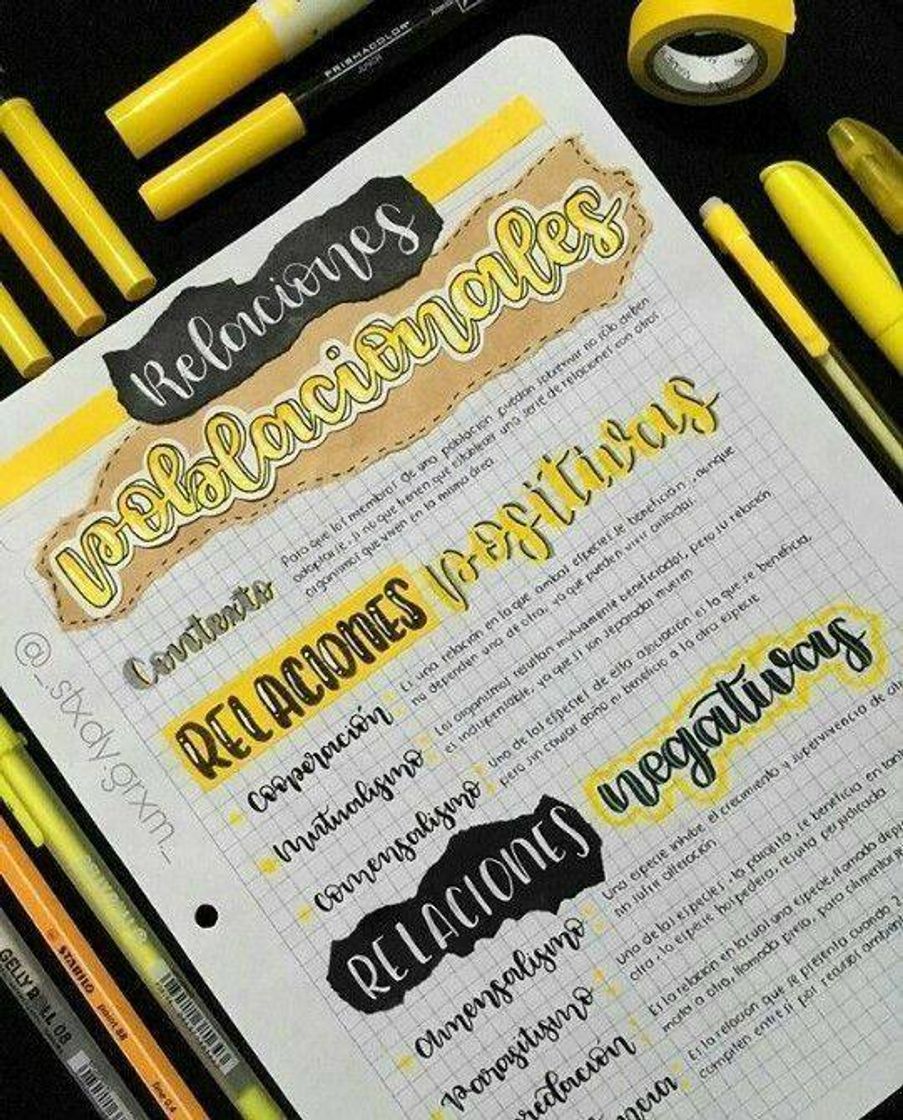 PRISMACOLOR
JUNIOR
Relaciones
poblacionales
Contexto
Para que los miembros de una población puedan sobrevivir no sólo deben
adaptarse, si no que tienen que establecer una serie de relaciones con otros
organismos que viven en la misma área.
RELACIONES positivas
Cooperación
Es una relación en la que ambas especies se benefician, aunque
no dependen una de otra, ya que pueden vivir aisladas.
Mutualismo
Los organismos resultan mutuamente beneficiados, pero su relación
es indispensable, ya que si son separadas mueren
comensalismo
Una de las especies de esta asociación es la que se beneficia,
pero sin causar daño ni beneficio a la otra especie
RELACIONES negativas
amensalismo
Una especie inhibe el crecimiento y supervivencia de
sin sufrir alteración
Parasitismo
Una de las especies, la parásita, se beneficia en
otra, la especie hospedera, resulta perjudicada
redación
Es la relación en la cual una especie, llamada
mata a otra, llamada presa, para alimentarse
ncia
Es la relación que se presenta cuando 2
compiten entre sí por recursos
@_stxdy.grxm_
STABILO point 88 fine 0.4
GELLY ROLL 08